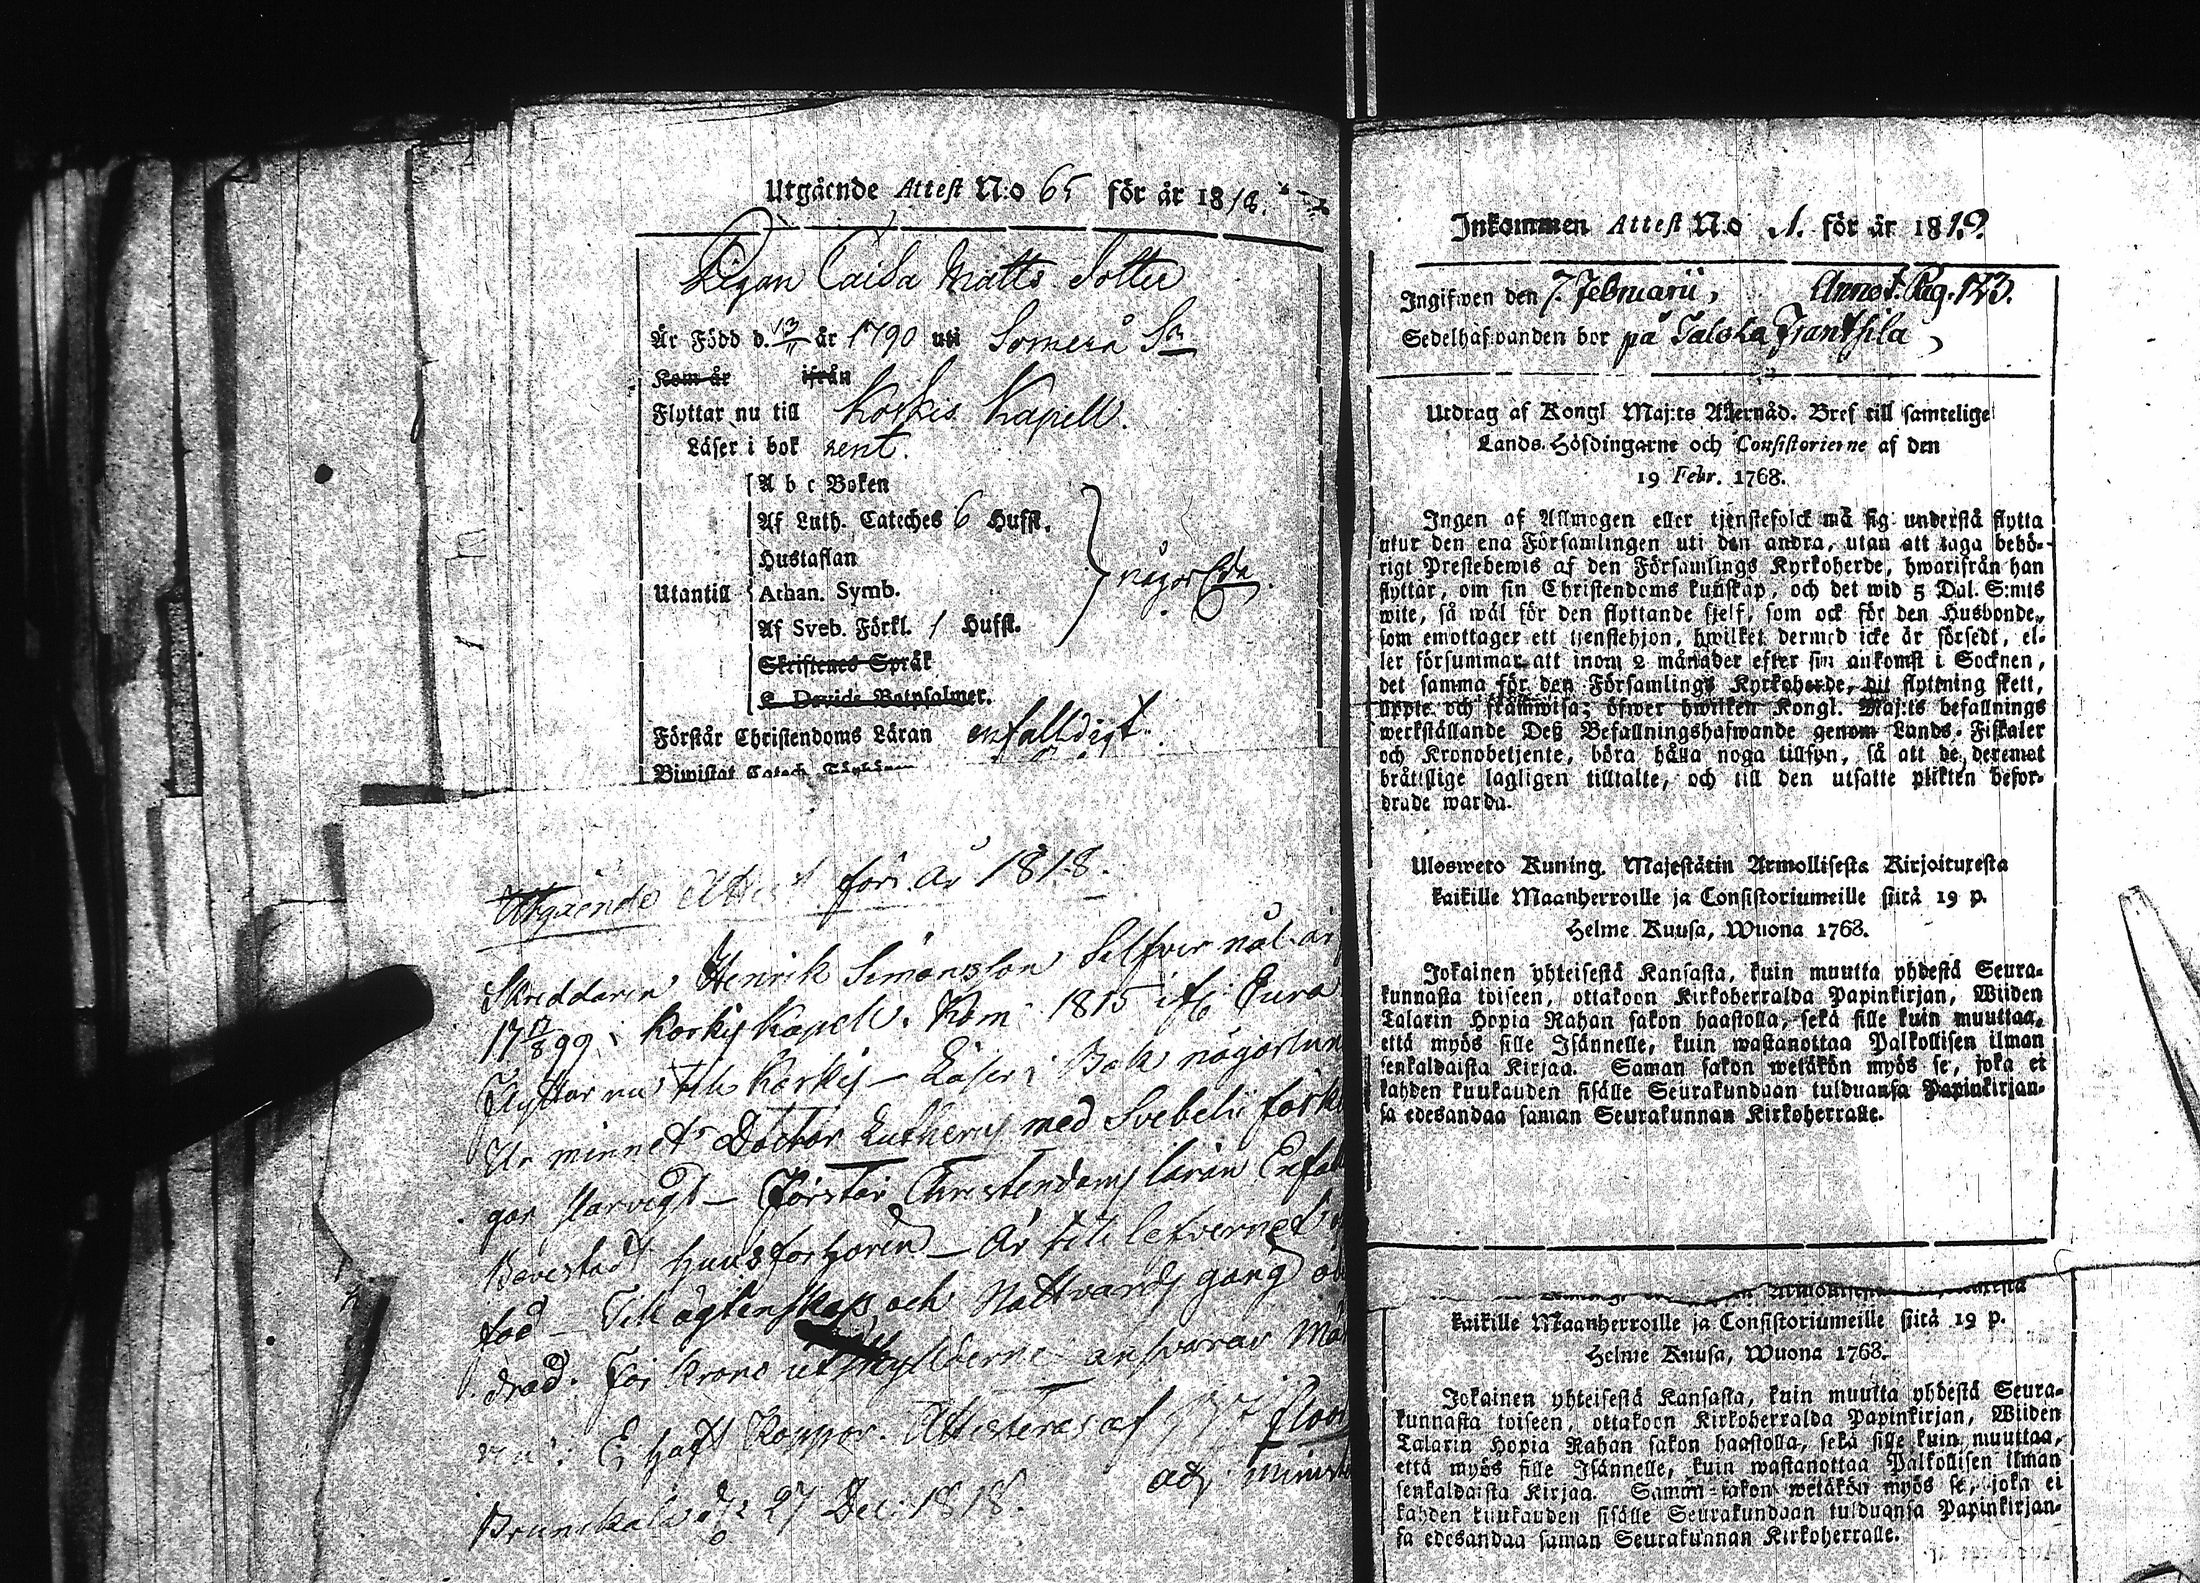 Utgående Attest N:o 65 för år 1818.
Pigan Caisa Matts dotter
Är Född d. 13/11 år 1790 uti Somerå Sn
Kom år ifrån
Flyttar nu till Koskis Kapell.
Läser i bok rent.
A b c Boken
Af Luth. Cateches 6 Hufst.
Hustaflan
Utantill Athan. Symb.
Af Sveb. Förkl. 1 Hufst.
Skriftenes Språk
K. Davids Botpsalmer.
någorl.
Förstår Christendoms Läran enfalldigt.
Biwistat Catech.
Utgående Attest för år 1818.
Skreddaren Henrik Simonsson Silfver nål
17 99 i Koskis Kapell. Kom 1815 Eura
Flyttar nu till Koskis – Läser i Bok någorlun
Ur minnet Doctor Lutheri med Svebelii förk
gar – Förstår Christendoms läran Enfal
Bevestadt huusforhören – Är till lefvernet
fod – Till ägtenskap och Nattvards gang
drad. För Krono utskylderne ansvarar
nu. Ej haft Koppor. Attesteras af
adj. minist
27 Dec: 1818.
Inkommen Attest N:o 1. för år 1819.
Ingifwen den 7. Februarii, Annot. Pag. 123.
Sedelhafwanden bor på Talola Frantsila
Utdrag af Kongl Maj:ts Allernåd. Bref till samtelige
Lands-Höfdingarne och Consistorierne af den
19 Febr. 1768.
Ingen af Allmogen eller tjenstefolck må sig understå flytta
utur den ena Församlingen uti den andra, utan att taga behö-
rigt Prestebewis af den Församlings Kyrkoherde, hwarifrån han
flyttar, om sin Christendoms kunskap, och det wid 5 Dal. S:mts
wite, så wäl för den flyttande sjelf, som ock för den Husbonde,
som emottager ett tjenstehjon, hwilket dermed icke är försedt, el-
ler försummar att inom 2 månader efter sin ankomst i Socknen,
det samma för den Församlings Kyrkoherde, dit flyttning skett,
uppte och framwisa; öfwer hwilken Kongl. Maj:ts befallnings
werkställande Deß Befallningshafwande genom Lands-Fiskaler
och Kronobetjente, böra hålla noga tillsyn, så att de deremot
bråttslige lagligen tilltalte, och till den utsatte plikten befor-
drade warda.
Uloswеto Kuning. Majestätin Armollisesta Kirjoituxesta
kaikille Maanherroille ja Consistoriumeille siitä 19 p.
Helme Kuusa, Wuona 1768.
Jokainen yhteisestä Kansasta, kuin muutta yhdestä Seura-
kunnasta toiseen, ottakoon Kirkoherralda Papinkirjan, Wiiden
Talarin Hopia Rahan sakon haastolla, sekä sille kuin muuttaa,
että myös sille Isännelle, kuin wastanottaa Palkollisen ilman
senkaldaista Kirjaa. Saman sakon wetäkön myös se, joka ei
kahden kuukauden sisälle Seurakundaan tulduansa Papinkirjan-
sa edesandaa saman Seurakunnan Kirkoherralle.
kaikille Maanherroille ja Consistoriumeille siitä 19 p.
Helme Kuusa, Wuona 1768.
Jokainen yhteisestä Kansasta, kuin muutta yhdestä Seura-
kunnasta toiseen, ottakoon Kirkoherralda Papinkirjan, Wiiden
Talarin Hopia Rahan sakon haastolla, sekä sille kuin muuttaa,
että myös sille Isännelle, kuin wastanottaa Palkollisen ilman
senkaldaista Kirjaa. Saman sakon wetäkön myös se, joka ei
kahden kuukauden sisälle Seurakundaan tulduansa Papinkirjan-
sa edesandaa saman Seurakunnan Kirkoherralle.